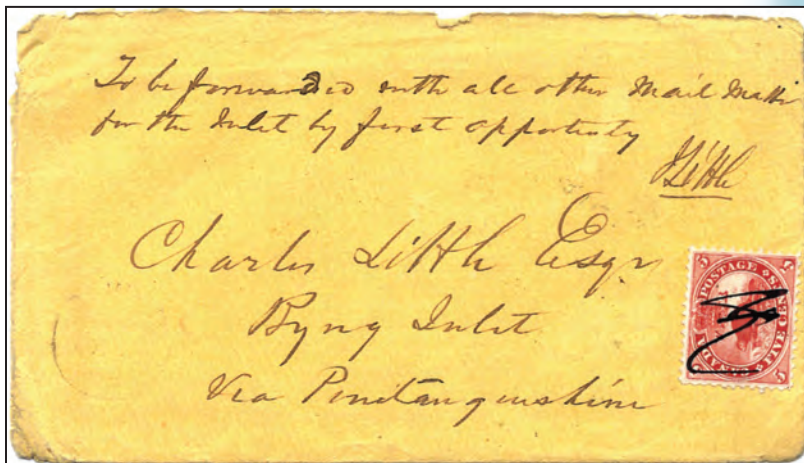 To be forwarded with all other Mail Matter
for the Inlet by first opportunity
JLittle
Charles Little Esqr
Byng Inlet
Via Penetanguishine
5 POSTAGE 5
CANADA
FIVE CENTS
5 5